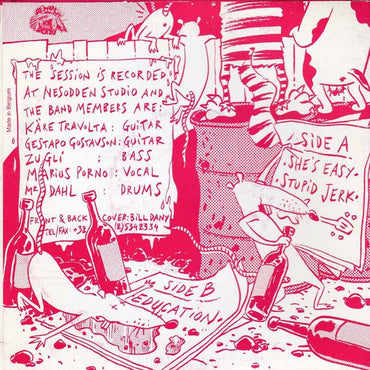 Made in Belgium
THE SESSION IS RECORDED
AT NESODDEN STUDIO AND
THE BAND MEMBERS ARE:
KÅRE TRAVOLTA: GUITAR
GESTAPO GUSTAVSON: GUITAR
ZUGLI : BASS
MARIUS PORNO: VOCAL
MR DAHL : DRUMS
FRONT & BACK COVER: BILL DANY
TEL/FAX: +32
SIDE A
SHE'S EASY.
STUPID JERK.
SIDE B
EDUCATION.